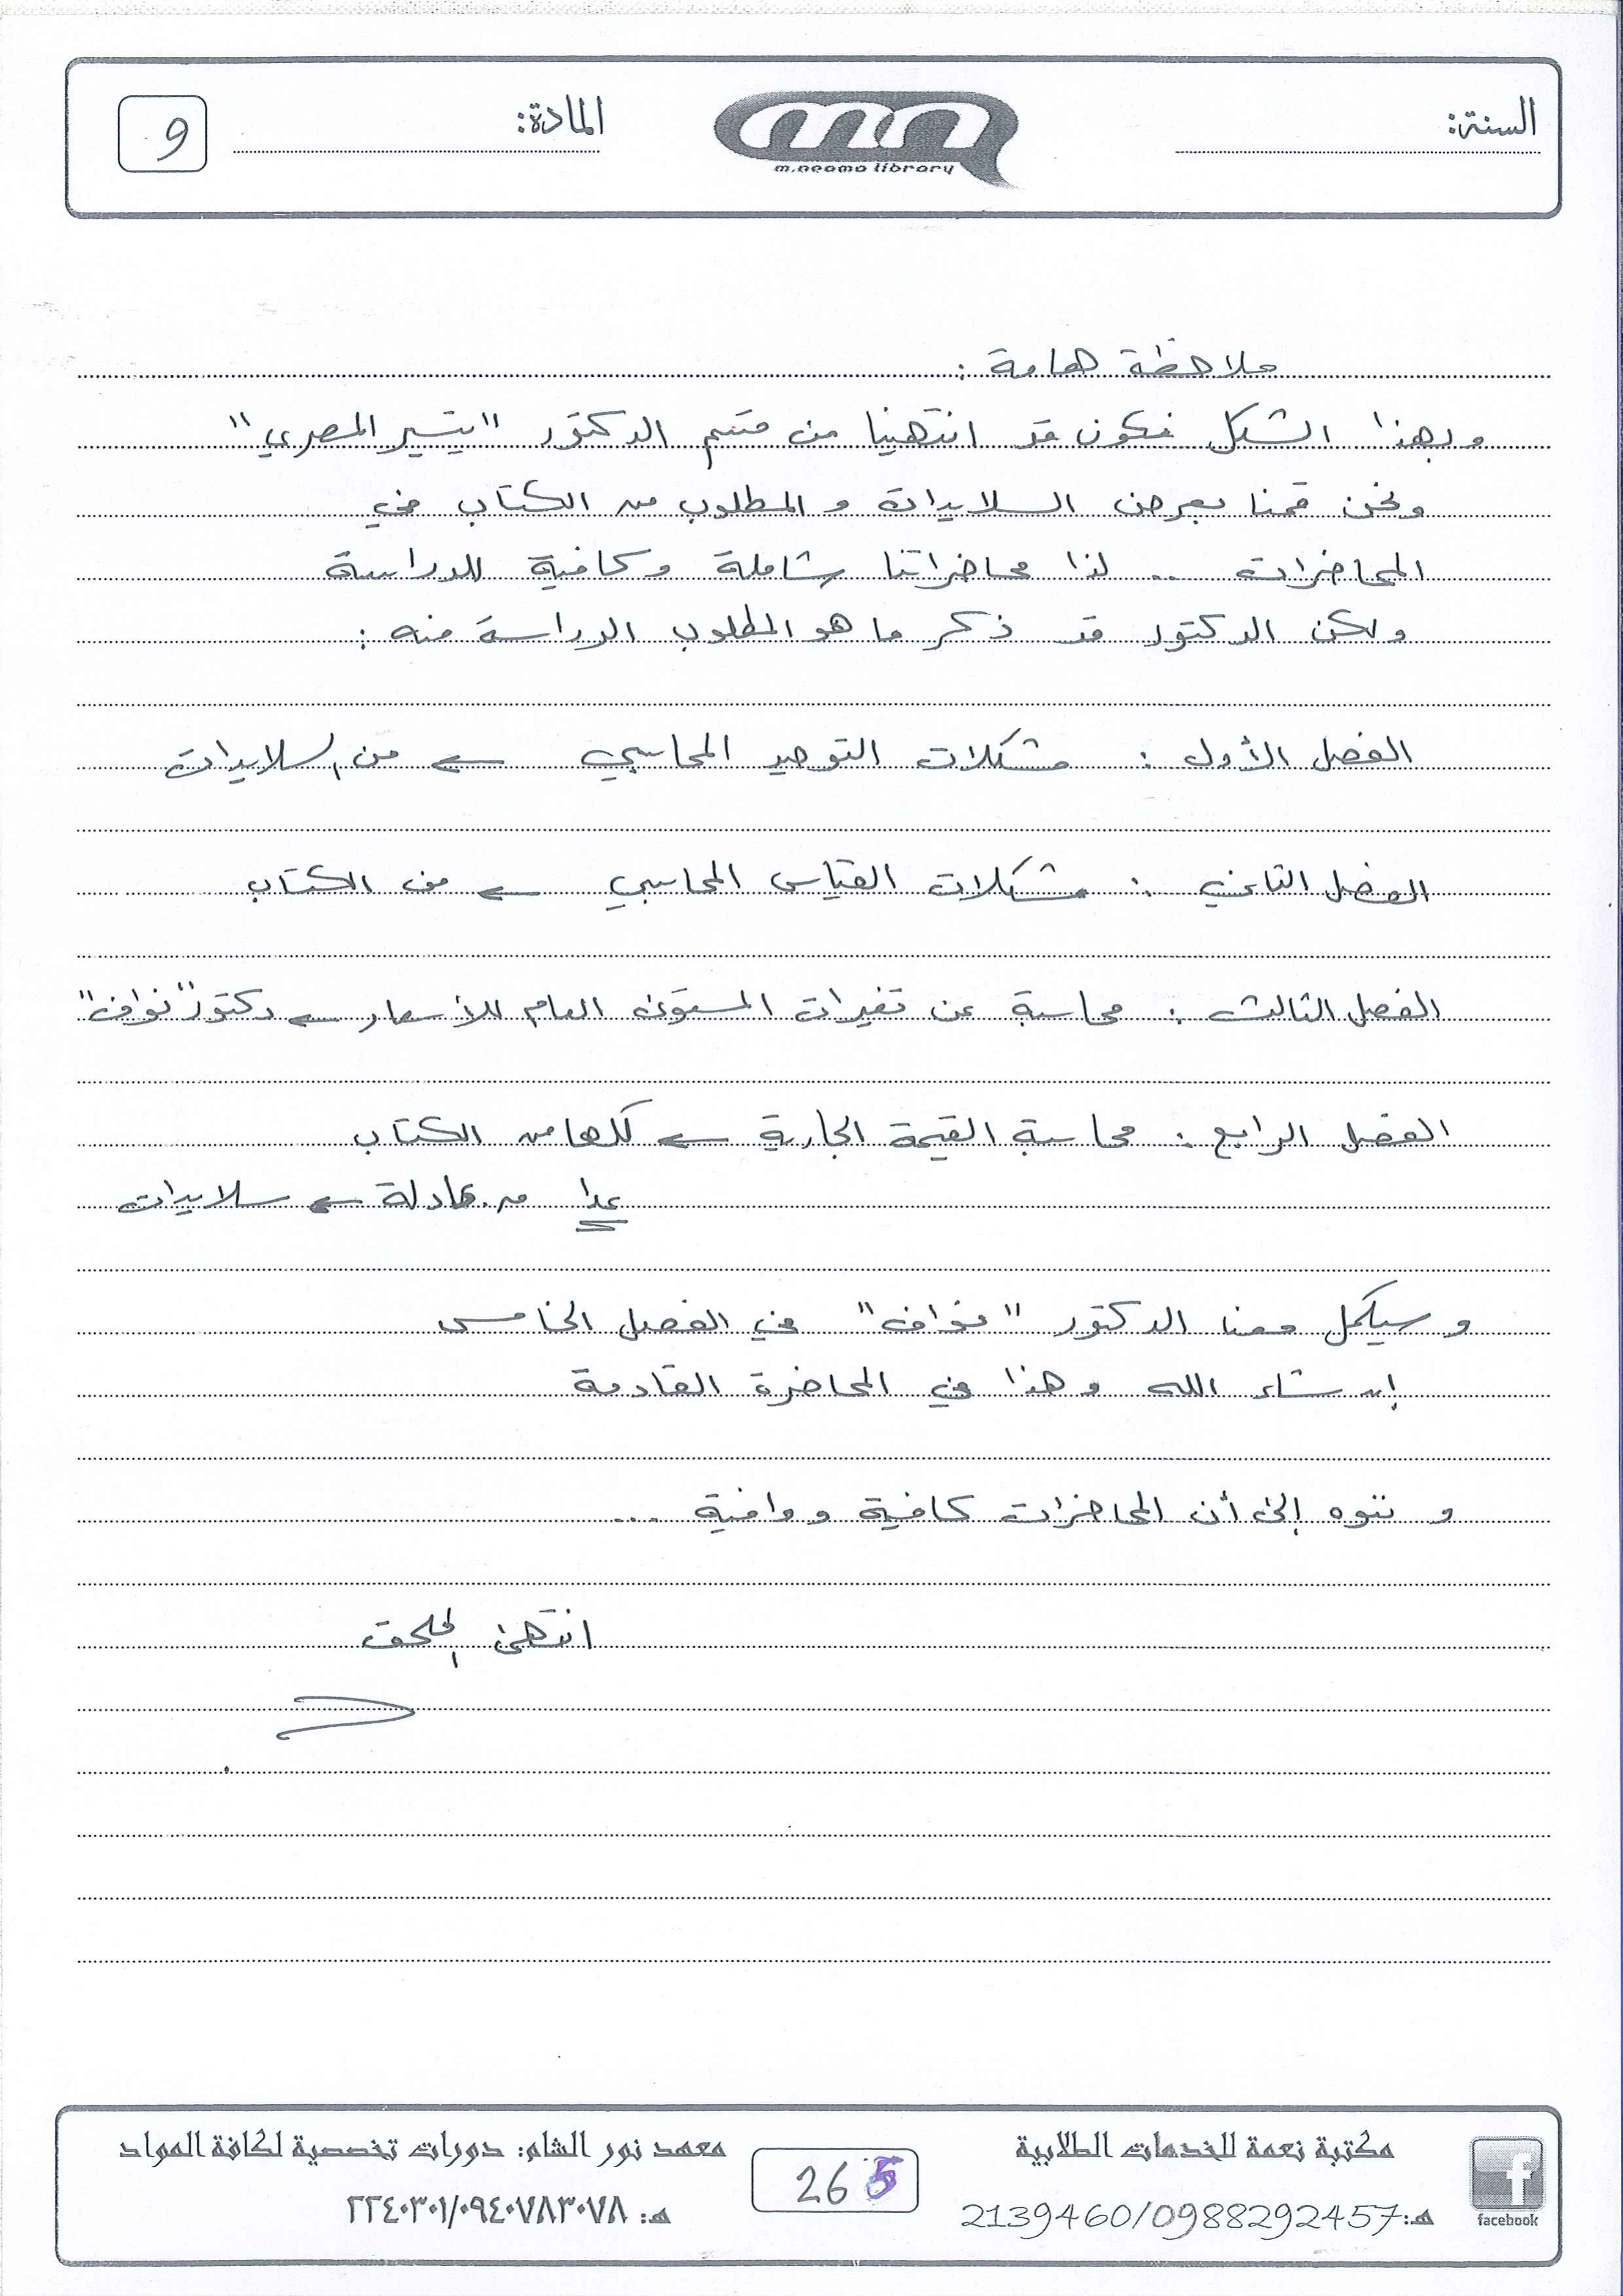 السنة:
m.neama library
المادة:
9
ملاحظة هامة :
وبهذا الشكل نكون قد انتهينا من قسم الدكتور "تيسير المصري"
ونحن قمنا بعرض السلايدات و المطلوب من الكتاب في
المحاضرات .. لذا محاضراتنا شاملة وكافية للدراسة
ولكن الدكتور قد ذكر ما هو المطلوب الدراسة منه :
الفصل الأول : مشكلات التوحيد المحاسبي ← من السلايدات
الفصل الثاني : مشكلات القياس المحاسبي ← من الكتاب
الفصل الثالث : محاسبة عن تغيرات المستوى العام للأسعار ← دكتور "نواف"
الفصل الرابع : محاسبة القيمة الجارية ← كلها من الكتاب
عدا ق. عادلة ← سلايدات
و سيكمل معنا الدكتور "نواف" في الفصل الخامس
إن شاء الله و هذا في المحاضرة القادمة
و ننوه إلى أن المحاضرات كافية و وافية ...
انتهى الملحق
facebook
مكتبة نعمة للخدمات الطلابية
هـ: 2139460/0988292457
265
معهد نور الشام: دورات تخصصية لكافة المواد
هـ: ٢٢٤٠٣٠١/٠٩٤٠٧٨٣٠٧٨